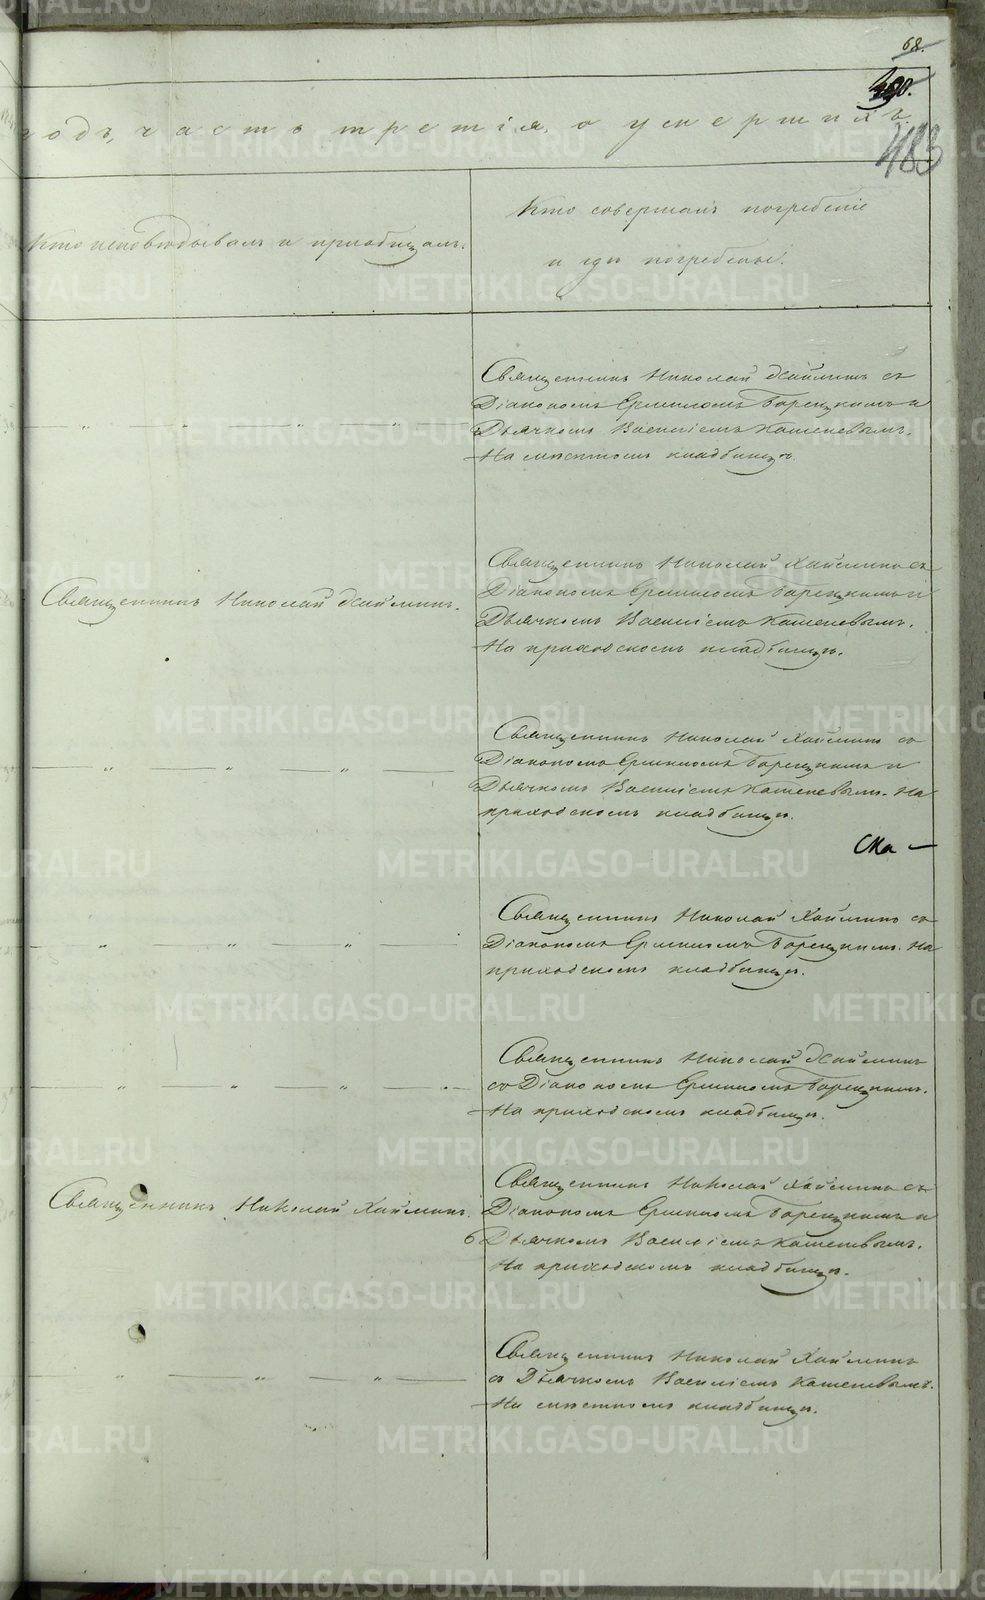 68.
годъ, часть третія, о умершихъ.
483
Кто исповѣдывалъ и пріобщалъ.
Кто совершалъ погребеніе
и гдѣ погребены.
Священникъ Николай Хайминъ съ
Діакономъ Ермиломъ Борецкимъ и
Дьячкомъ Василіемъ Кашевымъ.
На мѣстномъ кладбищѣ.
Священникъ Николай Хайминъ.
Священникъ Николай Хайминъ съ
Діакономъ Ермиломъ Борецкимъ и
Дьячкомъ Василіемъ
На приходскомъ кладбищѣ.
Священникъ Николай Хайминъ съ
Діакономъ Ермиломъ Борецкимъ и
Дьячкомъ Василіемъ На
приходскомъ кладбищѣ.
Ска —
Священникъ Николай Хайминъ съ
Діакономъ Ермиломъ Борецкимъ. На
приходскомъ кладбищѣ.
Священникъ Николай Хайминъ
съ Діакономъ Ермиломъ Борецкимъ.
На приходскомъ кладбищѣ.
Священникъ Николай Хайминъ.
Священникъ Николай Хайминъ съ
Діакономъ Ермиломъ Борецкимъ и
Дьячкомъ Василіемъ
На приходскомъ кладбищѣ.
Священникъ Николай Хайминъ
съ Дьячкомъ Василіемъ
На мѣстномъ кладбищѣ.
METRIKI.GASO-URAL.RU